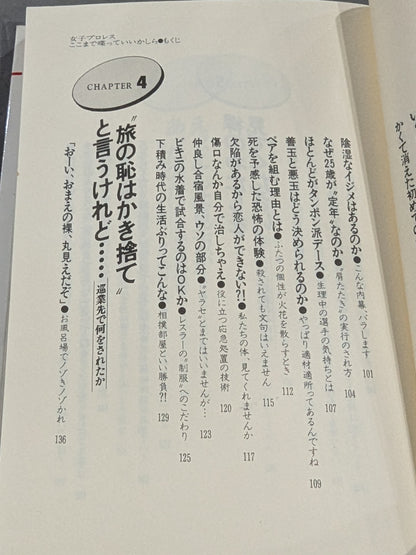 女子プロレス
ここまで喋っていいかしら●もくじ
陰湿なイジメはあるのか●こんな内幕、バラします 101
なぜ25歳が“定年”なのか●“肩たたき”の実行のされ方 104
ほとんどがタンポン派デース●生理中の選手の気持ちとは
善玉と悪玉はどう決められるのか●やっぱり適材適所ってあるんですね 109
ペアを組む理由とは●ふたつの個性が火花を散らすとき 112
死を予感した恐怖の体験●殺されても文句はいえません 115
欠陥があるから恋人ができない?!●私たちの体、見てくれませんか 117
傷口なんか自分で治しちゃえ●役に立つ応急処置の技術 120
仲良し合宿風景、ウソの部分●“ヤラセ”とまではいいませんが… 123
ビキニの水着で試合するのはOKか●レスラーの“制服”へのこだわり 125
下積み時代の生活ぶりってこんな●相撲部屋といい勝負?! 129
CHAPTER 4
“旅の恥はかき捨て”
と言うけれど……
巡業先で何をされたか
「おーい、おまえの裸、丸見えだぞ」●お風呂場でノゾきノゾかれ 136